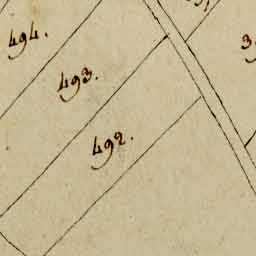 494.
493.
492.